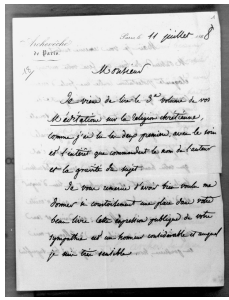 Archevêché
de Paris
Paris le 11 juillet 1868
Monsieur
Je viens de lire le 3e volume de vos
Méditations sur la religion chrétienne,
comme j'ai lu les deux premiers, avec le soin
et l'intérêt que commandent le nom de l'auteur
et la gravité du sujet.
Je vous remercie d'avoir bien voulu me
donner si courtoisement une place dans votre
beau livre. Cette expression publique de votre
sympathie est un honneur considérable et auquel
je suis très sensible.